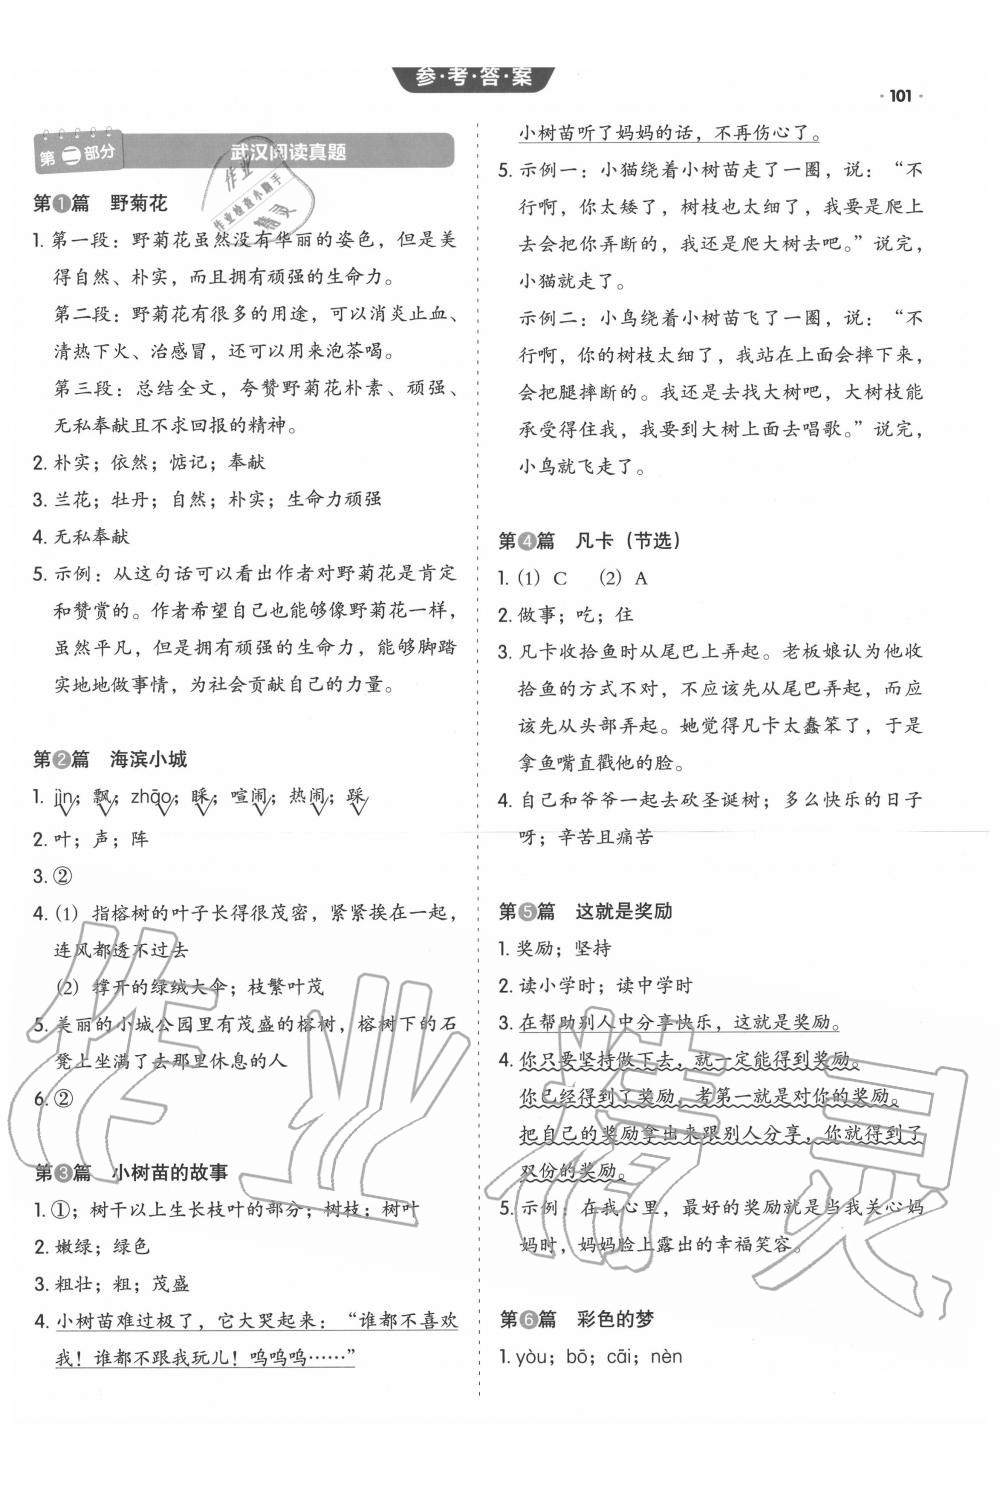 参·考·答·案
·101·
第二部分 武汉阅读真题
第1篇 野菊花
1. 第一段：野菊花虽然没有华丽的姿色，但是美
得自然、朴实，而且拥有顽强的生命力。
第二段：野菊花有很多的用途，可以消炎止血、
清热下火、治感冒，还可以用来泡茶喝。
第三段：总结全文，夸赞野菊花朴素、顽强、
无私奉献且不求回报的精神。
2. 朴实；依然；惦记；奉献
3. 兰花；牡丹；自然；朴实；生命力顽强
4. 无私奉献
5. 示例：从这句话可以看出作者对野菊花是肯定
和赞赏的。作者希望自己也能够像野菊花一样，
虽然平凡，但是拥有顽强的生命力，能够脚踏
实地地做事情，为社会贡献自己的力量。
第2篇 海滨小城
1. jìn；飘；zhāo；睬；喧闹；热闹；踩
2. 叶；声；阵
3. ②
4. （1）指榕树的叶子长得很茂密，紧紧挨在一起，
连风都透不过去
（2）撑开的绿绒大伞；枝繁叶茂
5. 美丽的小城公园里有茂盛的榕树，榕树下的石
凳上坐满了去那里休息的人
6. ②
第3篇 小树苗的故事
1. ①；树干以上生长枝叶的部分；树枝；树叶
2. 嫩绿；绿色
3. 粗壮；粗；茂盛
4. 小树苗难过极了，它大哭起来：“谁都不喜欢
我！谁都不跟我玩儿！呜呜呜……”
小树苗听了妈妈的话，不再伤心了。
5. 示例一：小猫绕着小树苗走了一圈，说：“不
行啊，你太矮了，树枝也太细了，我要是爬上
去会把你弄断的，我还是爬大树去吧。”说完，
小猫就走了。
示例二：小鸟绕着小树苗飞了一圈，说：“不
行啊，你的树枝太细了，我站在上面会摔下来，
会把腿摔断的。我还是去找大树吧，大树枝能
承受得住我，我要到大树上面去唱歌。”说完，
小鸟就飞走了。
第4篇 凡卡（节选）
1. （1）C （2）A
2. 做事；吃；住
3. 凡卡收拾鱼时从尾巴上弄起。老板娘认为他收
拾鱼的方式不对，不应该先从尾巴弄起，而应
该先从头部弄起。她觉得凡卡太蠢笨了，于是
拿鱼嘴直戳他的脸。
4. 自己和爷爷一起去砍圣诞树；多么快乐的日子
呀；辛苦且痛苦
第5篇 这就是奖励
1. 奖励；坚持
2. 读小学时；读中学时
3. 在帮助别人中分享快乐，这就是奖励。
4. 你只要坚持做下去，就一定能得到奖励。
你已经得到了奖励，考第一就是对你的奖励。
把自己的奖励拿出来跟别人分享，你就得到了
双份的奖励。
5. 示例：在我心里，最好的奖励就是当我关心妈
妈时，妈妈脸上露出的幸福笑容。
第6篇 彩色的梦
1. yòu；bō；cāi；nèn
作业精灵
作业
作业检查小助手
精灵